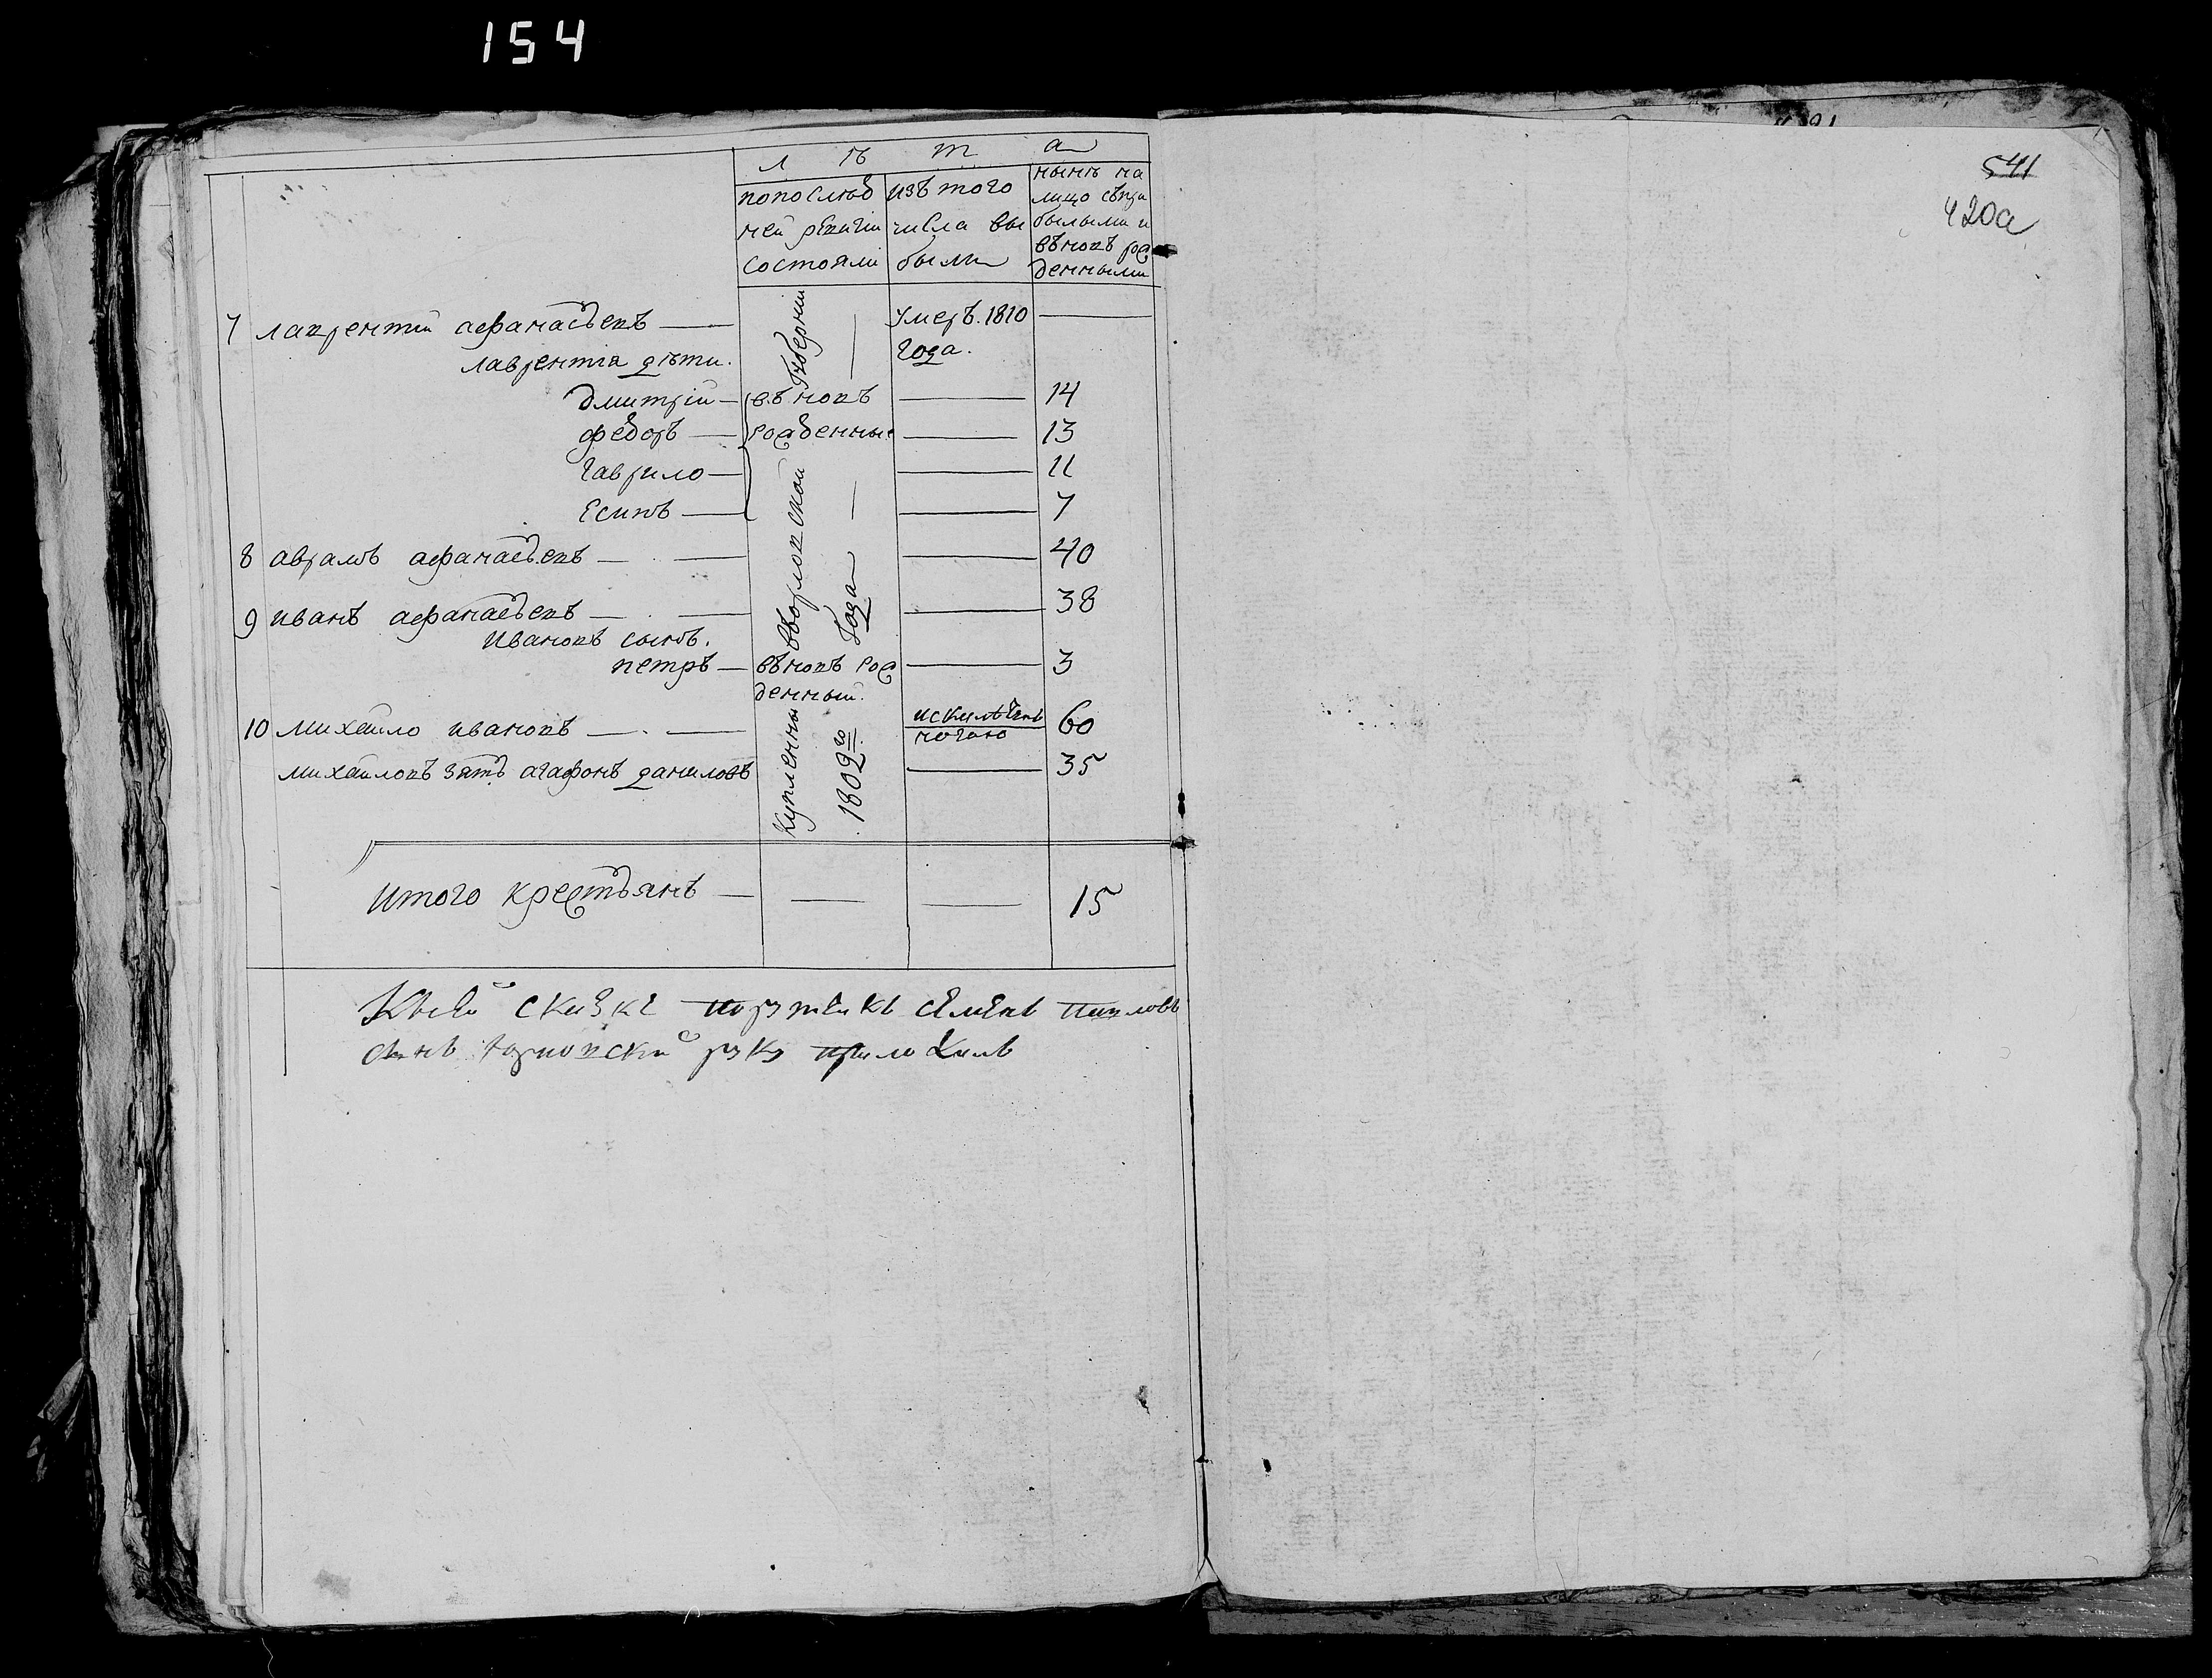 154
541
420а
лѣта
попослѣд
ней ревизіи
состояли
изъ того
числа вы
были
нынѣ на
лицо съпри
былыми и
вновь рож
денными
7 лаврентий афанасьевъ — умеръ. 1810 —
года.
лаврентія дѣти.
дмитрій — вновь — 14
федоръ — рожденные — 13
гаврило — — 11
Есипъ — — 7
8 аврамъ афанасьевъ — — 40
9 иванъ афанасьевъ — — 38
ивановъ сынъ.
петръ — вновь рож — 3
денный.
10 михайло ивановъ — искалѣченъ 60
ногаю
михайловъ зять агафонъ даниловъ — 35
Купленны ворловской Губернии
1802го Года
Итого крестьянъ — — — 15
Ксей сказке порутчикъ семенъ павловъ
сынъ руку приложилъ